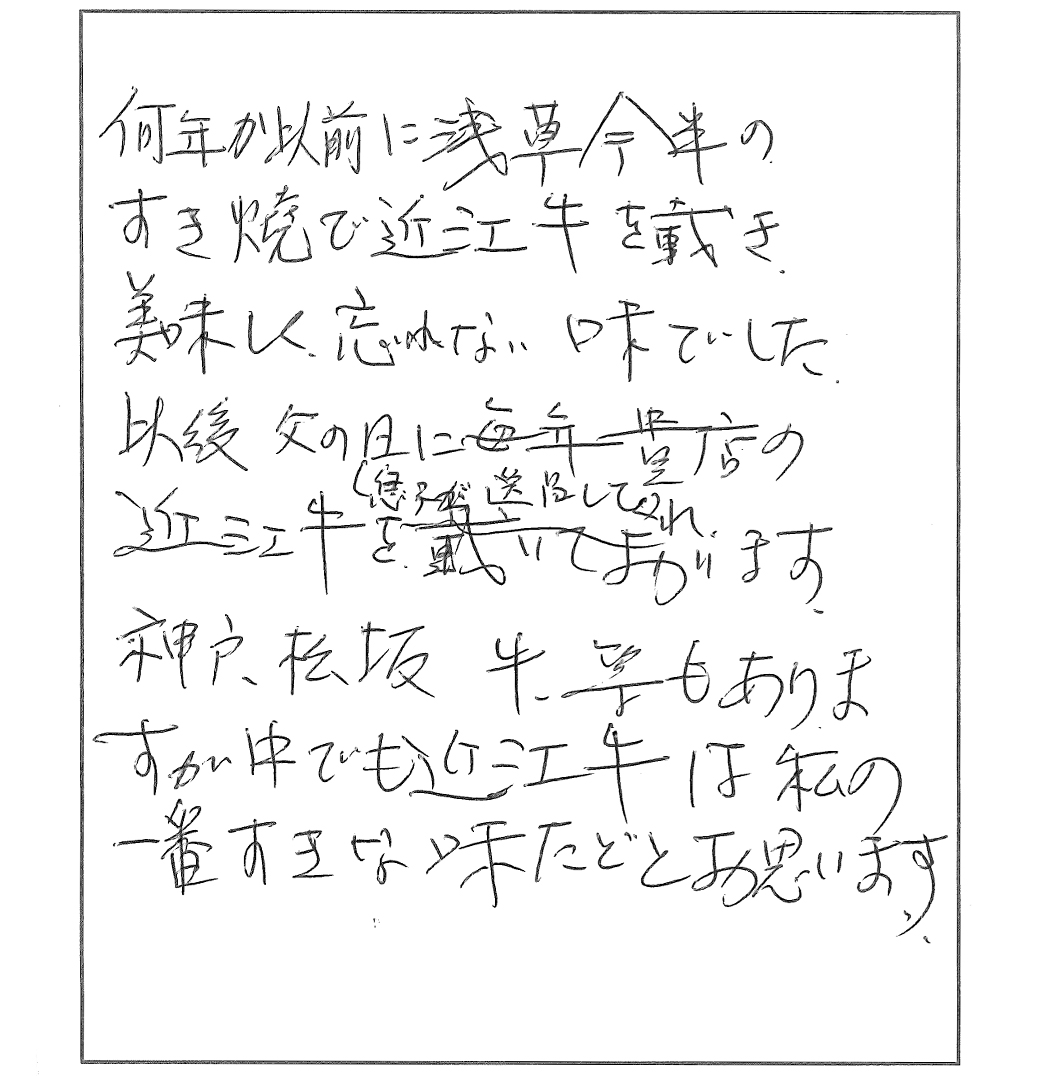 何年か以前に浅草今半の
すき焼で近江牛を戴き
美味しく、忘れない味でした。
以後父の日に毎年貴店の
(息子が送品してくれ
近江牛を戴いております。
神戸、松坂牛、等もありま
すが中でも近江牛は私の
一番すきな味だと思います。